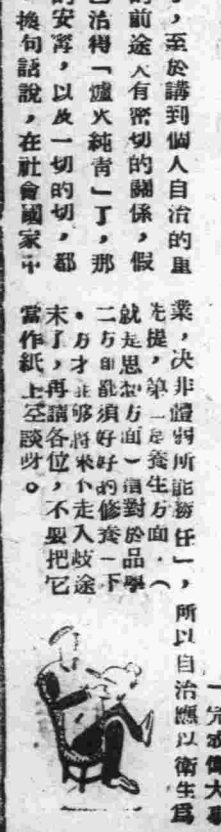 ，至於講到個人自治的重
的前途大有密切的關係，假
己治得「爐火純青」了，那
的安寧，以及一切的切，都
換句話說，在社會國家中
「完成偉大事
業，決非體弱所能務任」，所以自治應以衛生爲
先提，第一是養生方面，（
就是思想方面）對於品學
二方面都須好好的修養一下
，方才能够將來不走入歧途
末了，再請各位，不要把它
當作紙上空談呀。